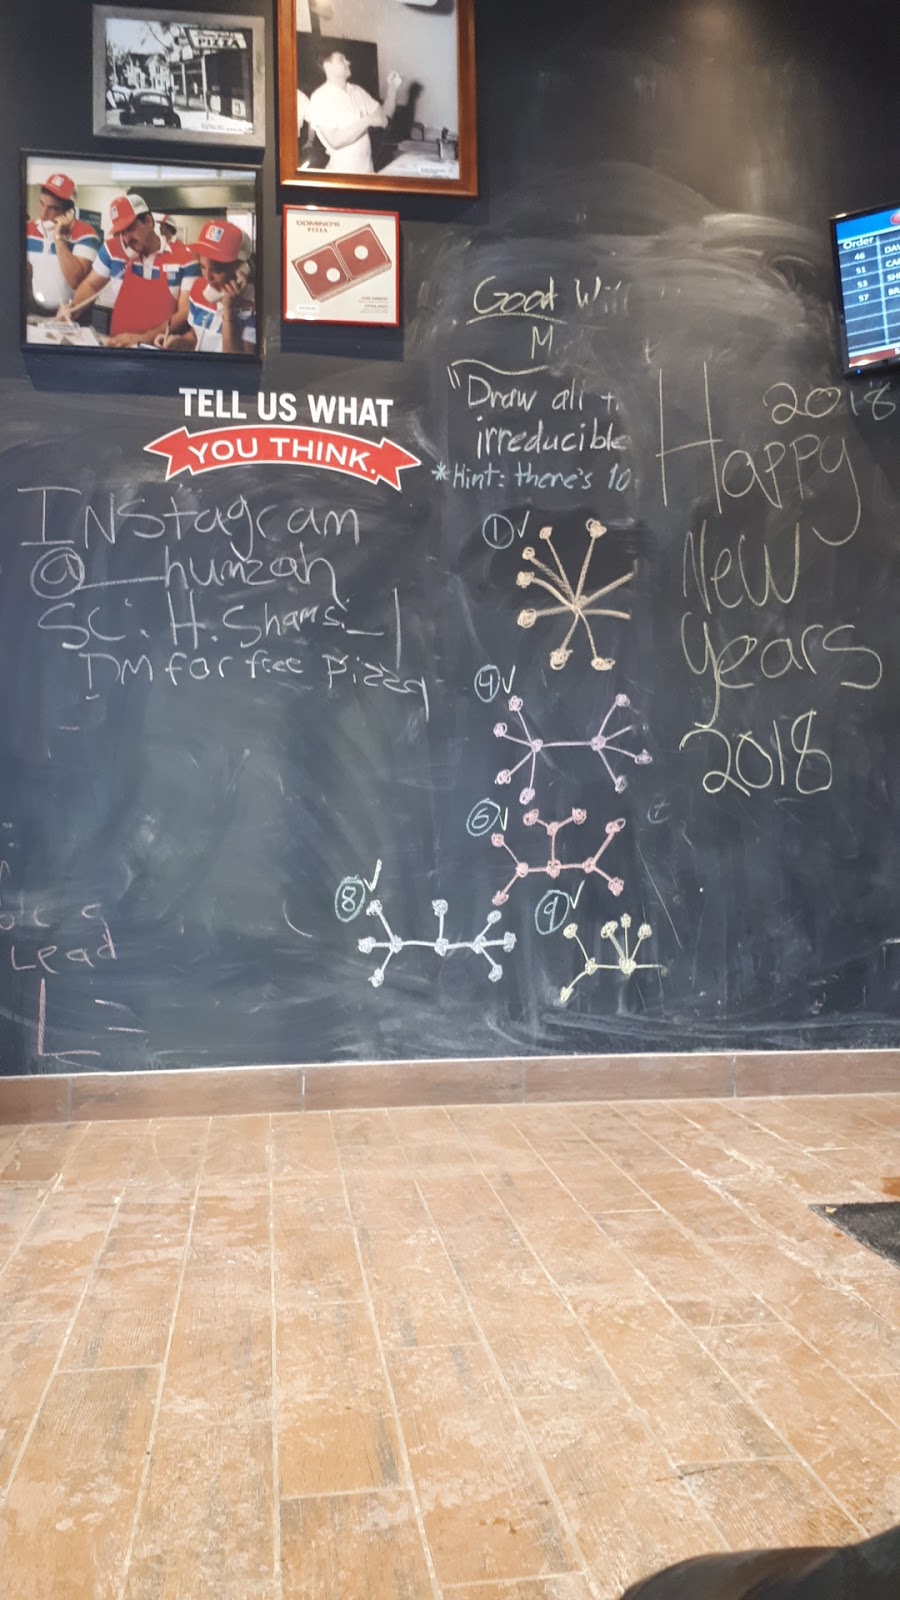 PIZZA
DOMINO'S
PIZZA
Order
46
51
53
57
TELL US WHAT
YOU THINK.
Instagram
@__humzah
SC: H.Shams_1
DM for free Pizza
Good Wi
M
"Draw all t
irreducible
*Hint: there's 10
1
4
6
8
9
2018
Happy
New
Years
2018
Lead
L